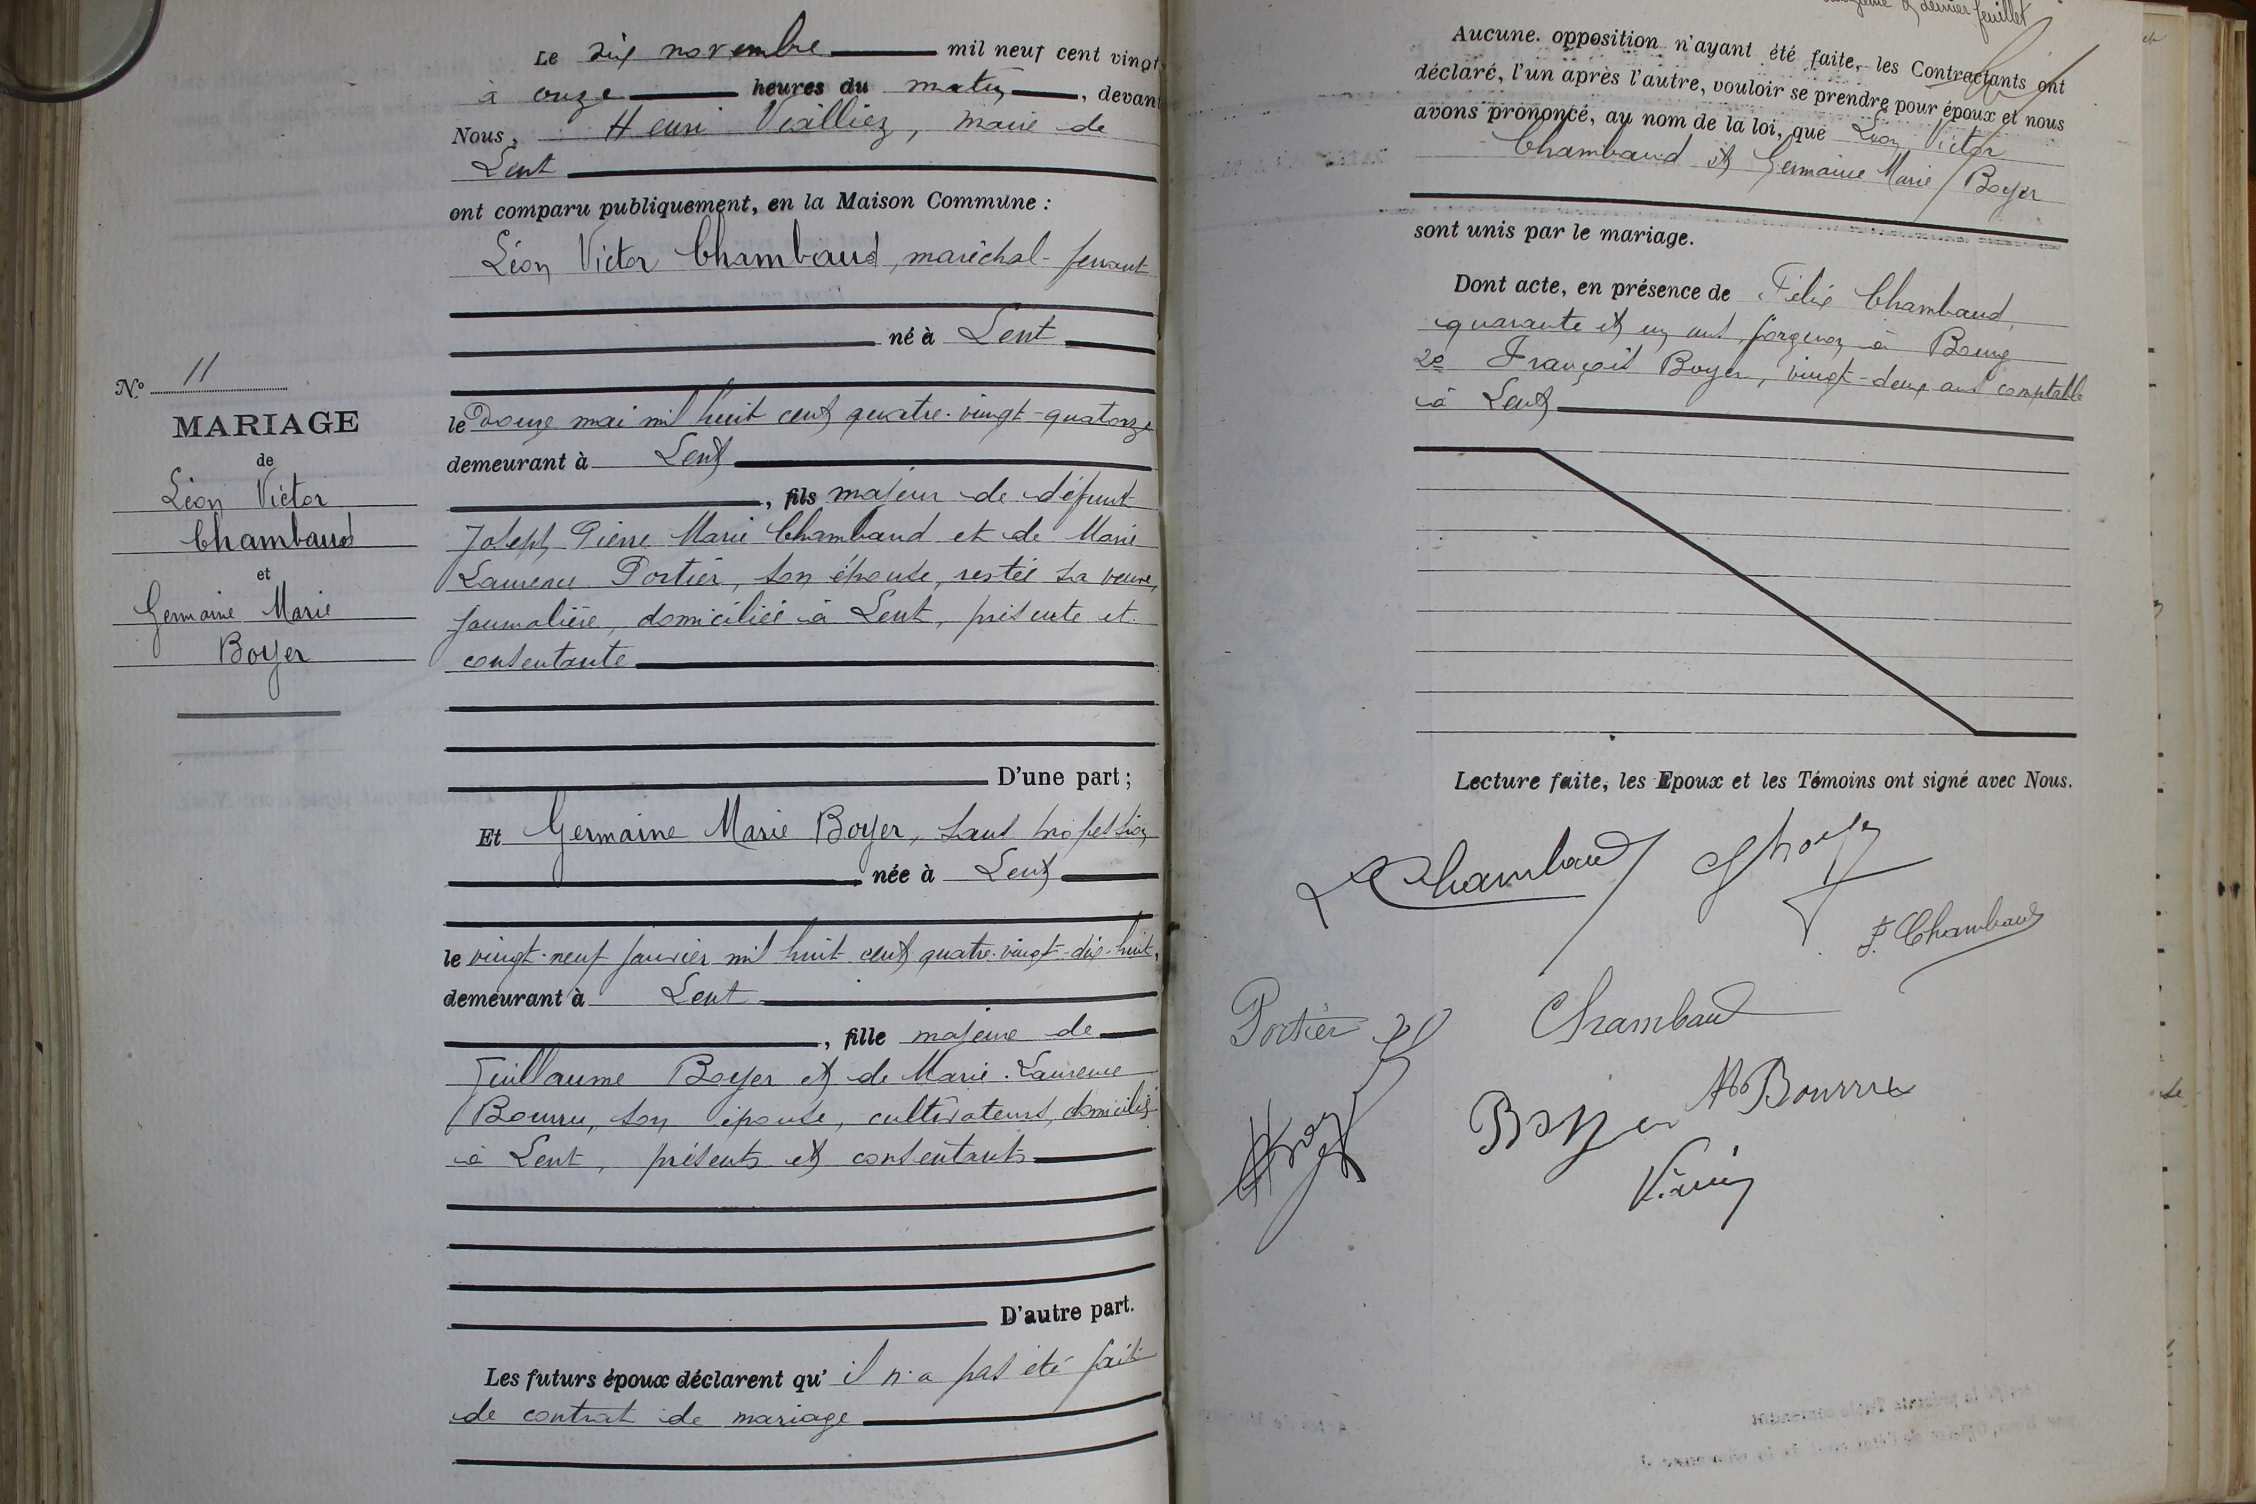 Le dix novembre mil neuf cent vingt
à onze heures du matin, devant
Nous, Henri Vialliez, maire de
Lent
ont comparu publiquement, en la Maison Commune :
Léon Victor Chambaud, maréchal-ferrant
né à Lent
N° 11
MARIAGE
de
Léon Victor
Chambaud
et
Germaine Marie
Boyer
le douze mai mil huit cent quatre-vingt-quatorze
demeurant à Lent
, fils majeur de défunt
Joseph Pierre Marie Chambaud et de Marie
Laurence Portier, son épouse, restée sa veuve,
journalière, domiciliée à Lent, présente et
consentante
D'une part ;
Et Germaine Marie Boyer, sans profession
née à Lent
le vingt-neuf janvier mil huit cent quatre-vingt-dix-huit,
demeurant à Lent
, fille majeure de
Guillaume Boyer et de Marie-Laurence
Bourru, son épouse, cultivateurs, domiciliés
à Lent, présents et consentants
D'autre part.
Les futurs époux déclarent qu'il n'a pas été fait
de contrat de mariage
et dernier feuillet
Aucune opposition n'ayant été faite, les Contractants ont
déclaré, l'un après l'autre, vouloir se prendre pour époux et nous
avons prononcé, au nom de la loi, que Léon Victor
Chambaud et Germaine Marie Boyer
sont unis par le mariage.
Dont acte, en présence de Félix Chambaud,
quarante et un ans, forgeron à Bourg
2° François Boyer, vingt-deux ans comptable
à Lent
Lecture faite, les Epoux et les Témoins ont signé avec Nous.
L Chambaud
F. Chambaud
Portier
Chambaud
Boyer
Bourru